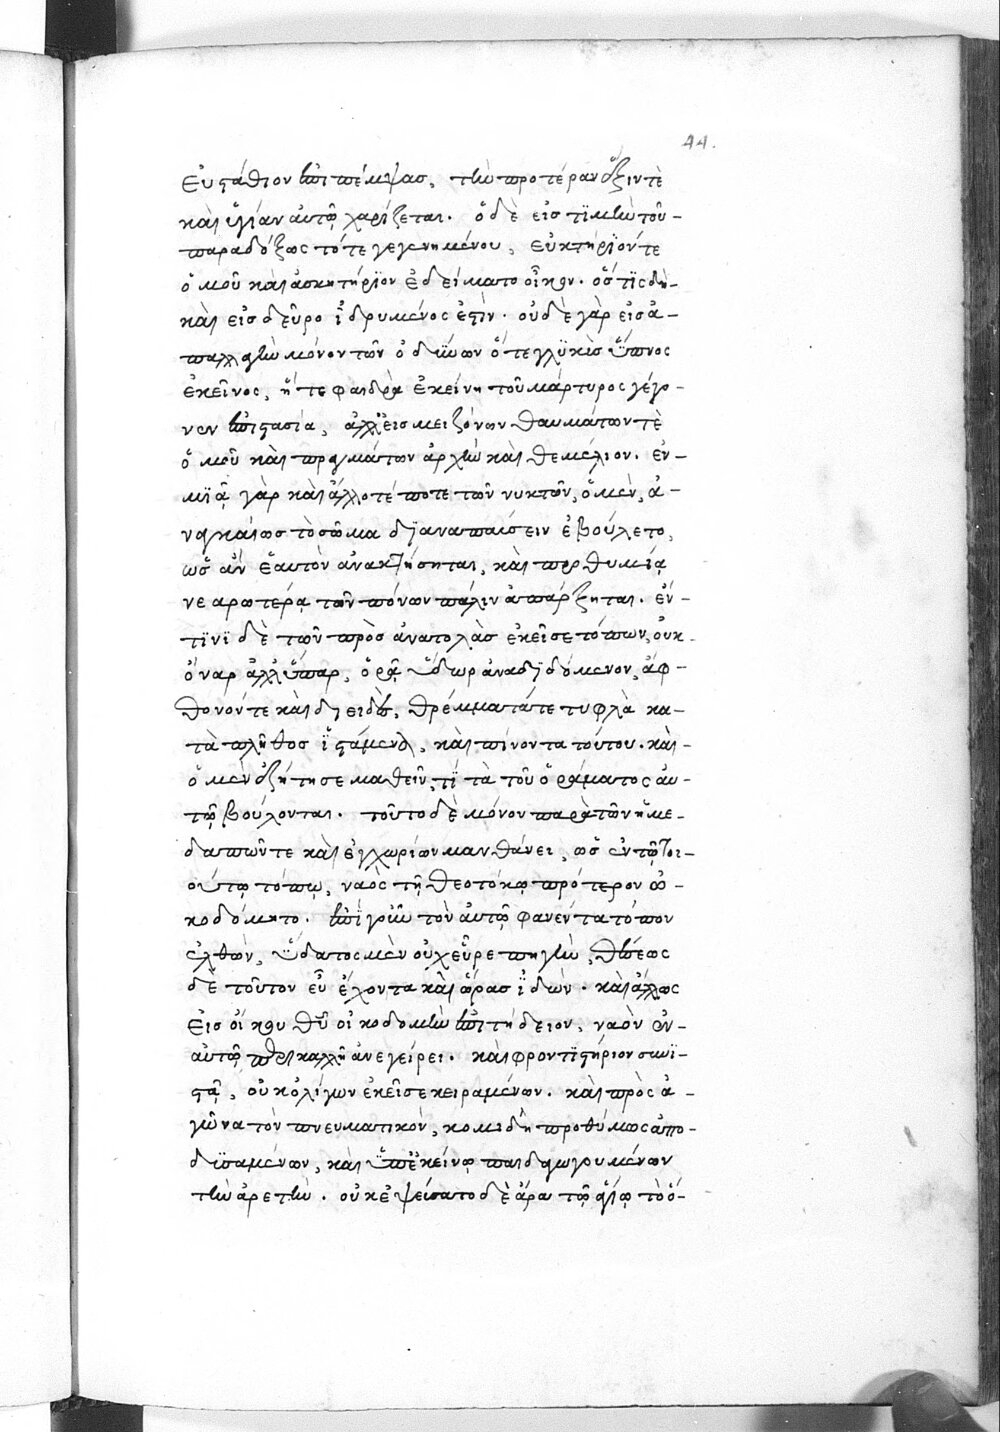 44.
Εὐστάθιον ἐπιπέμψας, τὴν προτέραν ἕξιν τὲ
καὶ ὑγίαν αὐτῶ χαρίζεται. ὁ δὲ εἰς τϊμὴν τοῦ -
παραδόξως τότε γεγενημένου, εὐκτήρϊόν τε
ὁμοῦ καὶ ἀσκητήρϊον ἐδείματο οἶκον. ὅς τϊς δὴ -
καὶ εἰς δεῦρο ἱδρυμένος ἐστὶν. οὐδὲ γὰρ εἰς ἀ -
παλλαγὴν μόνον τῶν ὀδϋνων ὅ τε γλϋκὺς ὕπνος
ἐκεῖνος, ἥ τε φαιδρὰ ἐκείνη τοῦ μάρτυρος γέγο -
νεν ἐπιστασία, ἀλλ' εἰς μειζόνων θαυμάτων τὲ
ὁμοῦ καὶ πραγμάτων ἀρχὴν καὶ θεμέλιον. ἐν -
μϊᾶ γὰρ καὶ ἄλλοτέ ποτε τῶν νυκτῶν, ὁ μὲν, ἀ -
ναγκαίως τὸ σῶμα δϊαναπαύσειν ἐβούλετο,
ὡς ἂν ἑαυτὸν ἀνακτήσηται, καὶ προθυμία
νεαρωτέρα τῶν πόνων πάλιν ἀπάρξηται. ἔν -
τϊνϊ δὲ τῶν πρὸς ἀνατολὰς ἐκεῖσε τόπων, οὐκ -
ὄναρ ἀλλ' ὕπαρ, ὁρᾶ ὕδωρ ἀναδϊδόμενον, ἄφ -
θονόν τε καὶ διειδὲς, θρέμματά τε τυφλὰ κα -
τὰ πλῆθος ἱστάμενα, καὶ πίνοντα τούτου. καὶ -
ὁ μὲν ἐζήτησε μαθεῖν, τϊ τὰ τοῦ ὁράματος αὐ -
τῶ βούλονται. τοῦτο δὲ μόνον παρὰ τῶν ἡμε -
δαπῶν τε καὶ ἐγχωρίων μανθάνει, ὡς ἐν τῶ τοι -
ούτω τόπω, ναὸς τῆ θεοτόκω πρότερον ὠ -
κοδόμητο. ἐπὶ γοῦν τὸν αὐτῶ φανέντα τόπον
ἐλθὼν, ὕδατος μὲν οὐχ εὗρε πηγὴν, θέσεως
δὲ τοῦτον εὖ ἔχοντα καὶ ὥρας ἰδὼν. καὶ ἄλλως
εἰς οἴκου θῦ οἰκοδομὴν ἐπιτήδειον, ναὸν ἐν -
αὐτῶ περικαλλῆ ἀνεγείρει. καὶ φροντϊστήριον συνϊ -
στᾶ, οὐκ ὀλίγων ἐκεῖσε κειραμένων. καὶ πρὸς ἀ -
γῶνα τὸν πνευματικὸν, κομιδῆ προθύμως ἀπο -
δϋσαμένων, καὶ ὑπ' ἐκείνω παιδαγωγουμένων
τὴν ἀρετὴν. οὐκ ἐψεύσατο δὲ ἄρα τῶ ἁγίω τὸ ὅ -